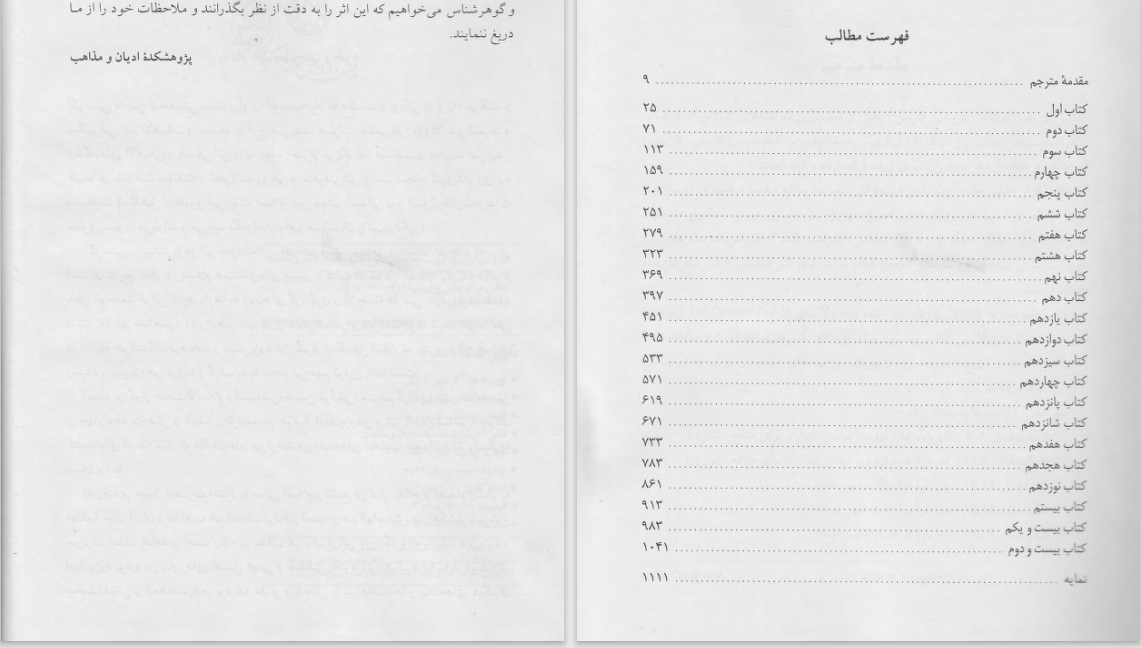 و گوهرشناس می‌خواهیم که این اثر را به دقت از نظر بگذرانند و ملاحظات خود را از ما
دریغ ننمایند.
پژوهشکدۀ ادیان و مذاهب
فهرست مطالب
مقدمۀ مترجم ........ ۹
کتاب اول ........ ۲۵
کتاب دوم ........ ۷۱
کتاب سوم ........ ۱۱۳
کتاب چهارم ........ ۱۵۹
کتاب پنجم ........ ۲۰۱
کتاب ششم ........ ۲۵۱
کتاب هفتم ........ ۲۷۹
کتاب هشتم ........ ۳۲۳
کتاب نهم ........ ۳۶۹
کتاب دهم ........ ۳۹۷
کتاب یازدهم ........ ۴۵۱
کتاب دوازدهم ........ ۴۹۵
کتاب سیزدهم ........ ۵۳۳
کتاب چهاردهم ........ ۵۷۱
کتاب پانزدهم ........ ۶۱۹
کتاب شانزدهم ........ ۶۷۱
کتاب هفدهم ........ ۷۳۳
کتاب هجدهم ........ ۷۸۳
کتاب نوزدهم ........ ۸۶۱
کتاب بیستم ........ ۹۱۳
کتاب بیست و یکم ........ ۹۸۳
کتاب بیست و دوم ........ ۱۰۴۱
نمایه ........ ۱۱۱۱